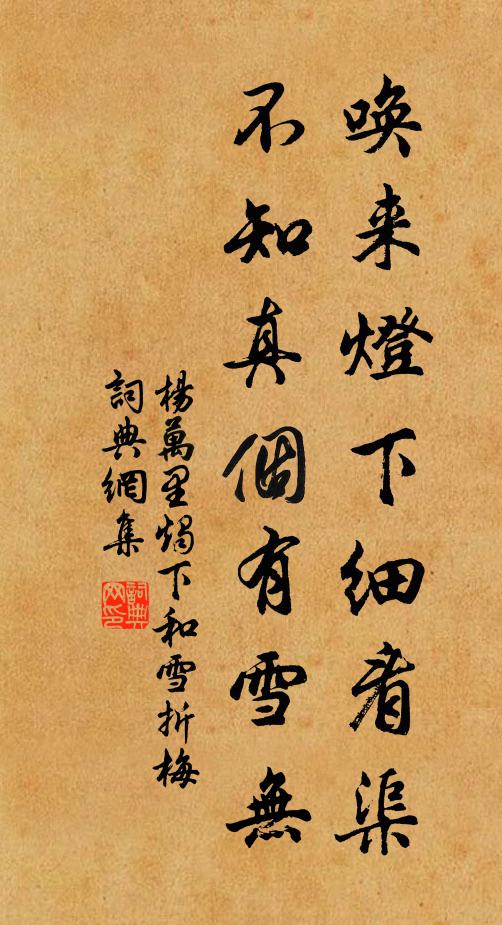 唤来燈下細看渠
不知真個有雪無
楊萬里燭下和雪折梅
詞典網集
詞典網印